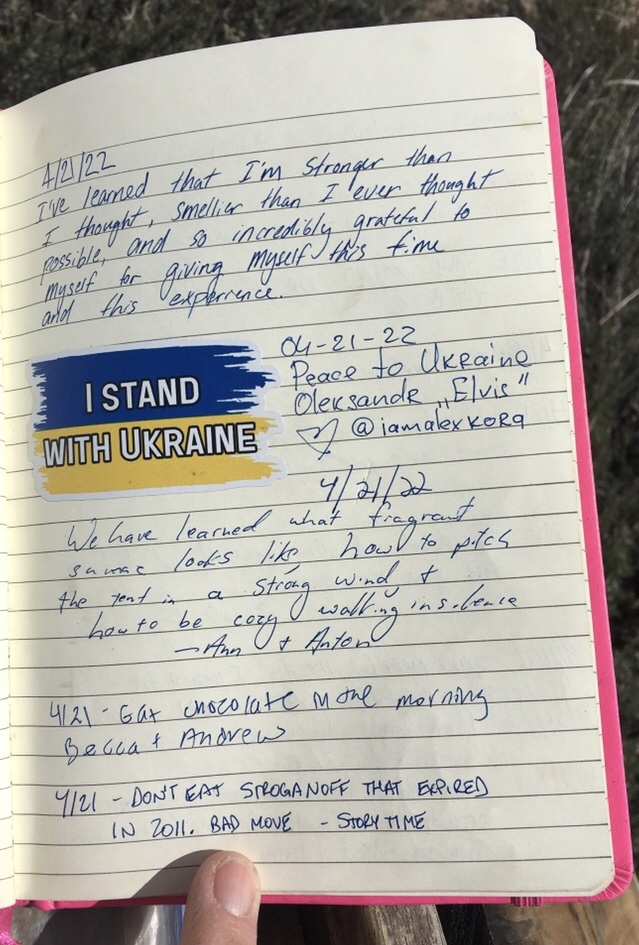 4/21/22
I've learned that I'm stronger than
I thought, smellier than I ever thought
possible, and so incredibly grateful to
myself for giving myself this time
and this experience.
I STAND
WITH UKRAINE
04-21-22
Peace to Ukraine
Oleksandr „Elvis"
@iamalexkora
4/21/22
We have learned what fragrant
sumac looks like, how to pitch
the tent in a strong wind &
how to be cozy walking in silence
— Ann & Anton
4/21 - Eat chocolate in the morning
Becca + Andrew
4/21 - DON'T EAT STROGANOFF THAT EXPIRED
IN 2011. BAD MOVE - STORYTIME